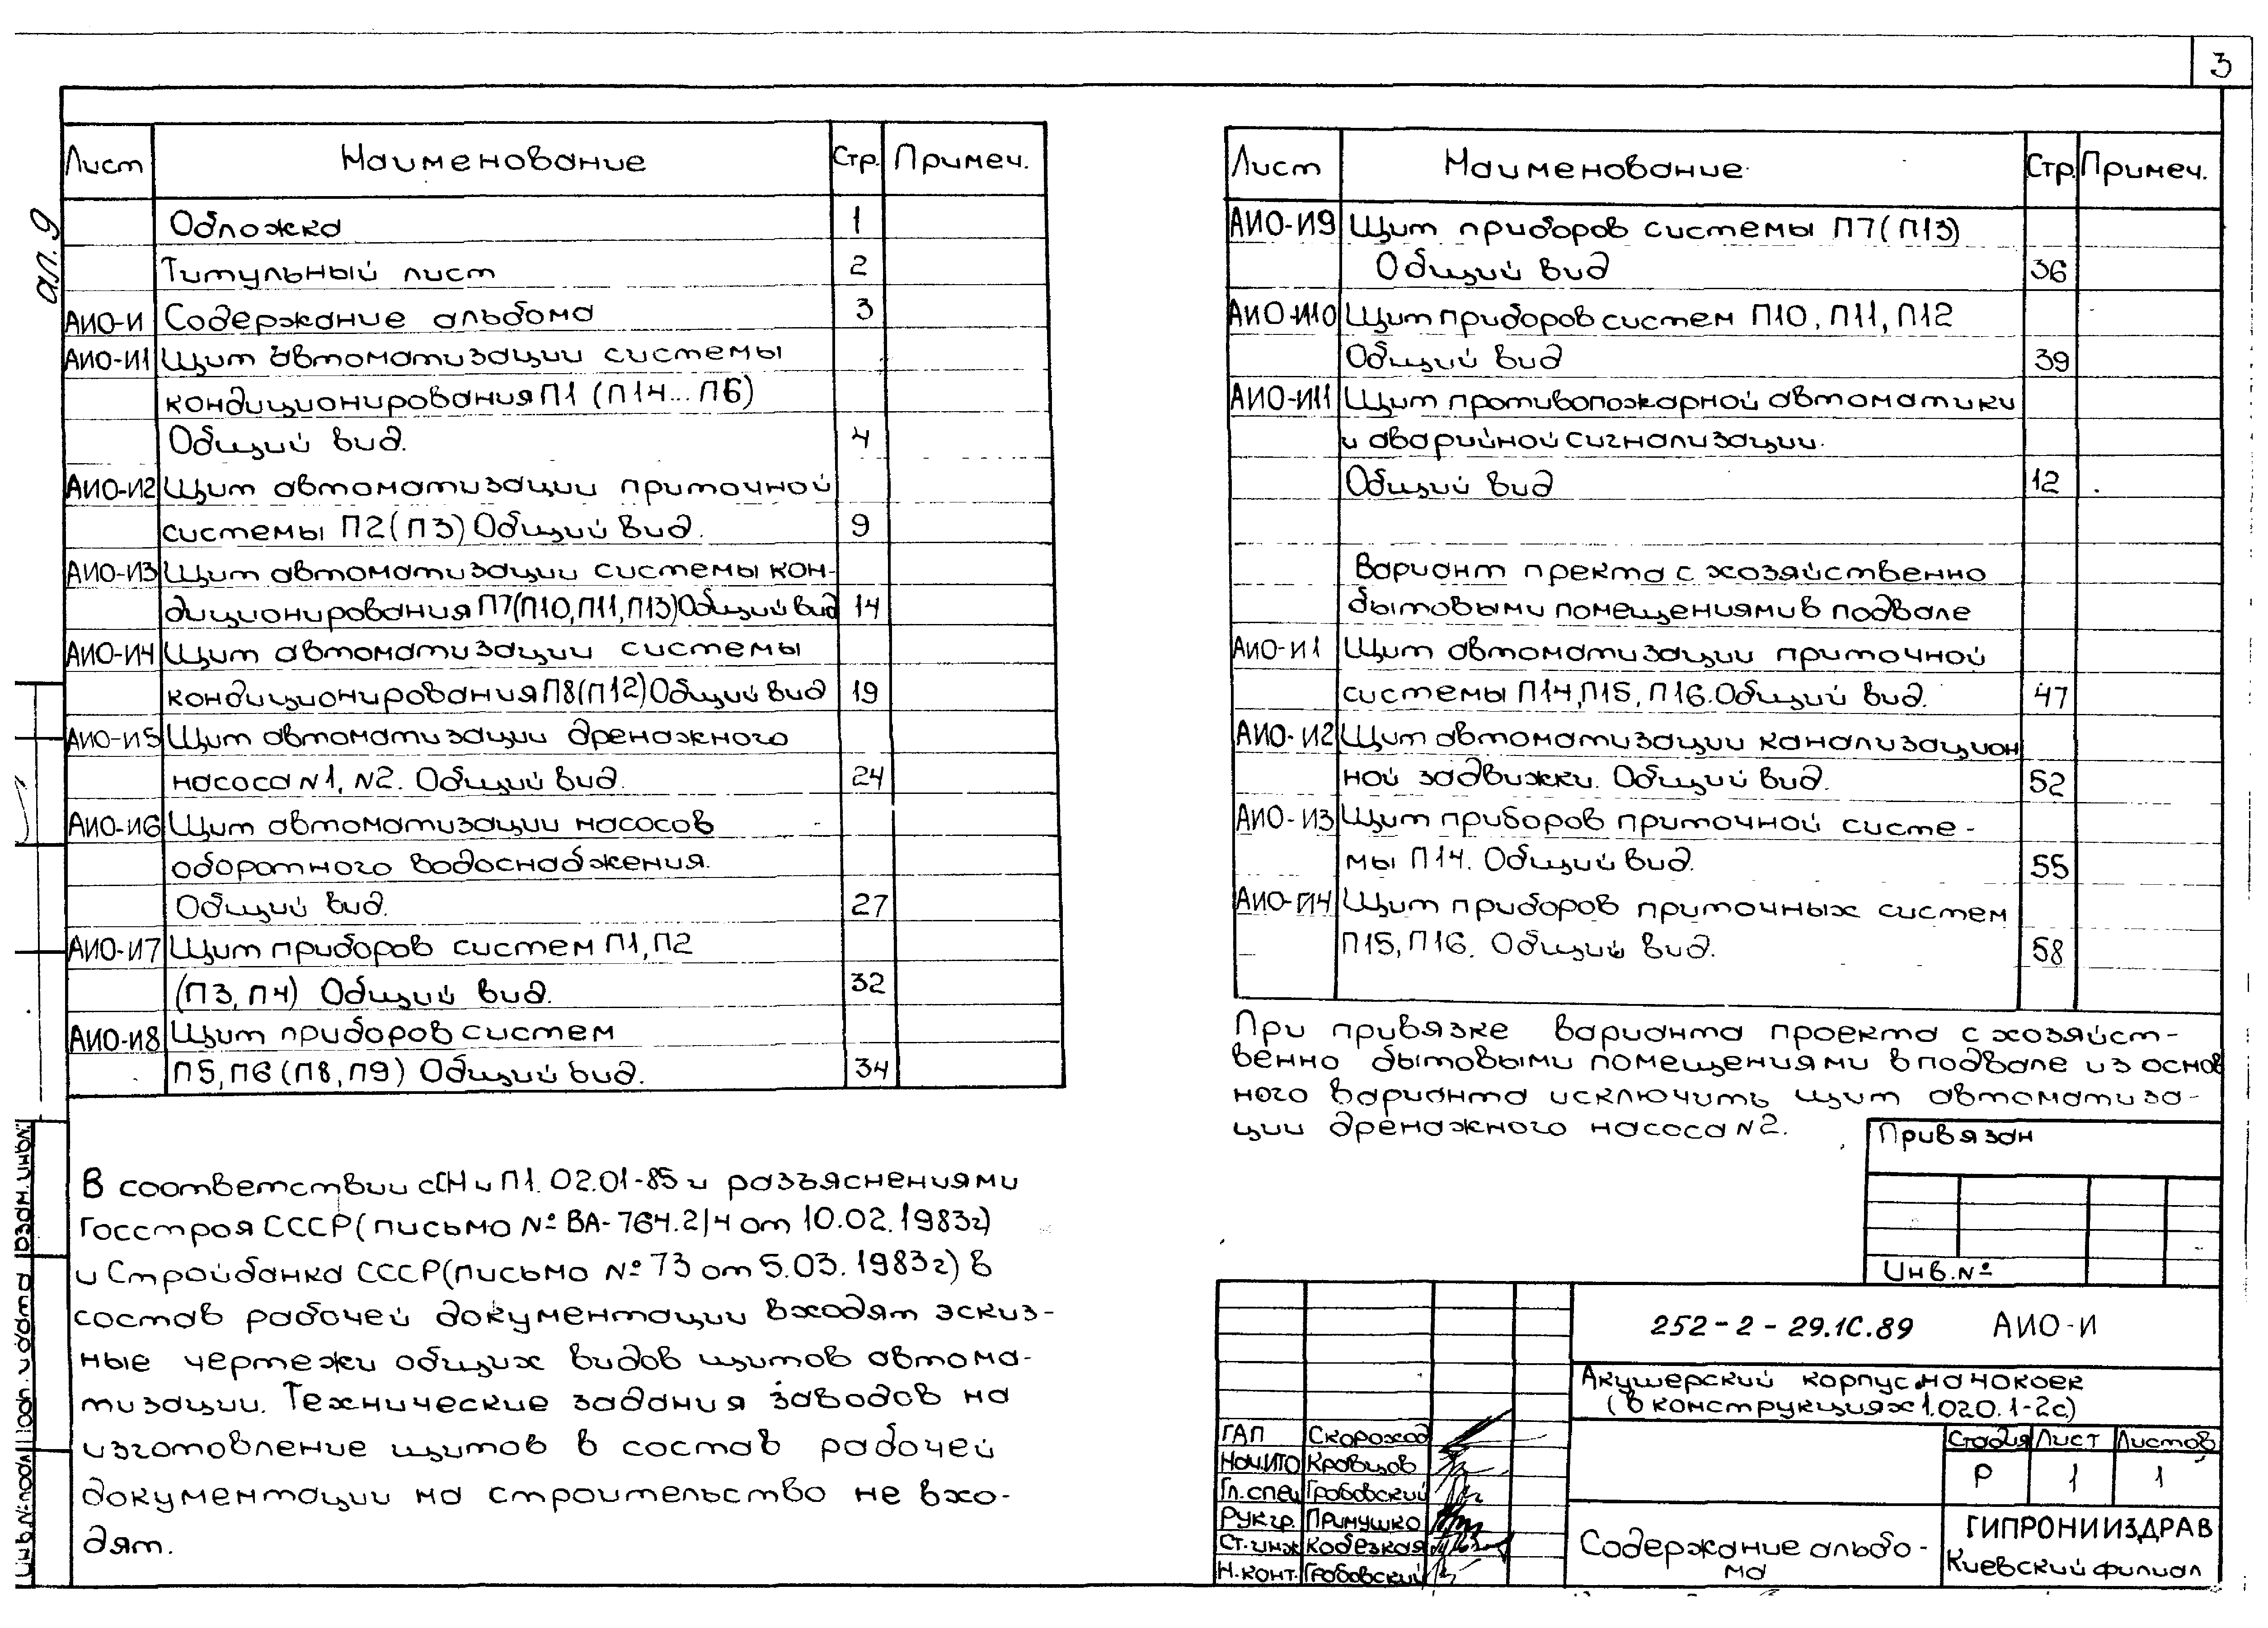 3
ал. 9
Лист Наименование Стр. Примеч.
Обложка 1
Титульный лист 2
АИО-И Содержание альбома 3
АИО-И1 Щит автоматизации системы
кондиционирования П1 (П14...П6)
Общий вид. 4
АИО-И2 Щит автоматизации приточной
системы П2(П3) Общий вид. 9
АИО-И3 Щит автоматизации системы кон-
диционирования П7(П10,П11,П13)Общий вид 14
АИО-И4 Щит автоматизации системы
кондиционирования П8(П12)Общий вид 19
АИО-И5 Щит автоматизации дренажного
насоса N1, N2. Общий вид. 24
АИО-И6 Щит автоматизации насосов
оборотного водоснабжения.
Общий вид. 27
АИО-И7 Щит приборов систем П1,П2
(П3,П4) Общий вид. 32
АИО-И8 Щит приборов систем
П5,П6 (П8,П9) Общий вид. 34
В соответствии с СН и П1.02.01-85 и разъяснениями
Госстроя СССР(письмо № ВА-764.2/4 от 10.02.1983г)
и Стройбанка СССР(письмо № 73 от 5.03.1983г) в
состав рабочей документации входят эскиз-
ные чертежи общих видов щитов автома-
тизации. Технические задания заводов на
изготовление щитов в состав рабочей
документации на строительство не вхо-
дят.
Лист Наименование Стр. Примеч.
АИО-И9 Щит приборов системы П7(П13)
Общий вид 36
АИО-И10 Щит приборов систем П10, П11, П12
Общий вид 39
АИО-И11 Щит противопожарной автоматики
и аварийной сигнализации.
Общий вид 12
Вариант пректа с хозяйственно
бытовыми помещениями в подвале
АИО-И1 Щит автоматизации приточной
системы П14,П15, П16.Общий вид. 47
АИО-И2 Щит автоматизации канализацион
ной задвижки. Общий вид. 52
АИО-И3 Щит приборов приточной систе-
мы П14. Общий вид. 55
АИО-И4 Щит приборов приточных систем
П15, П16. Общий вид. 58
При привязке варианта проекта с хозяйст-
венно бытовыми помещениями в подвале из основ
ного варианта исключить щит автоматиза-
ции дренажного насоса N2.
Привязан
Инв. №
252-2-29.1С.89 АИО-И
Акушерский корпус на 40 коек
(в конструкциях 1.020.1-2с)
ГАП Скороход
Нач.ИТО Кравцов
Гл.спец Гробовский
Рук.гр. Примушко
Ст.инж Кобезкая
Н.конт. Гробовский
Стадия Лист Листов
Р 1 1
Содержание альбо-
ма
ГИПРОНИИЗДРАВ
Киевский филиал
Инв.№ подл. Подп. и дата Взам.инв.№